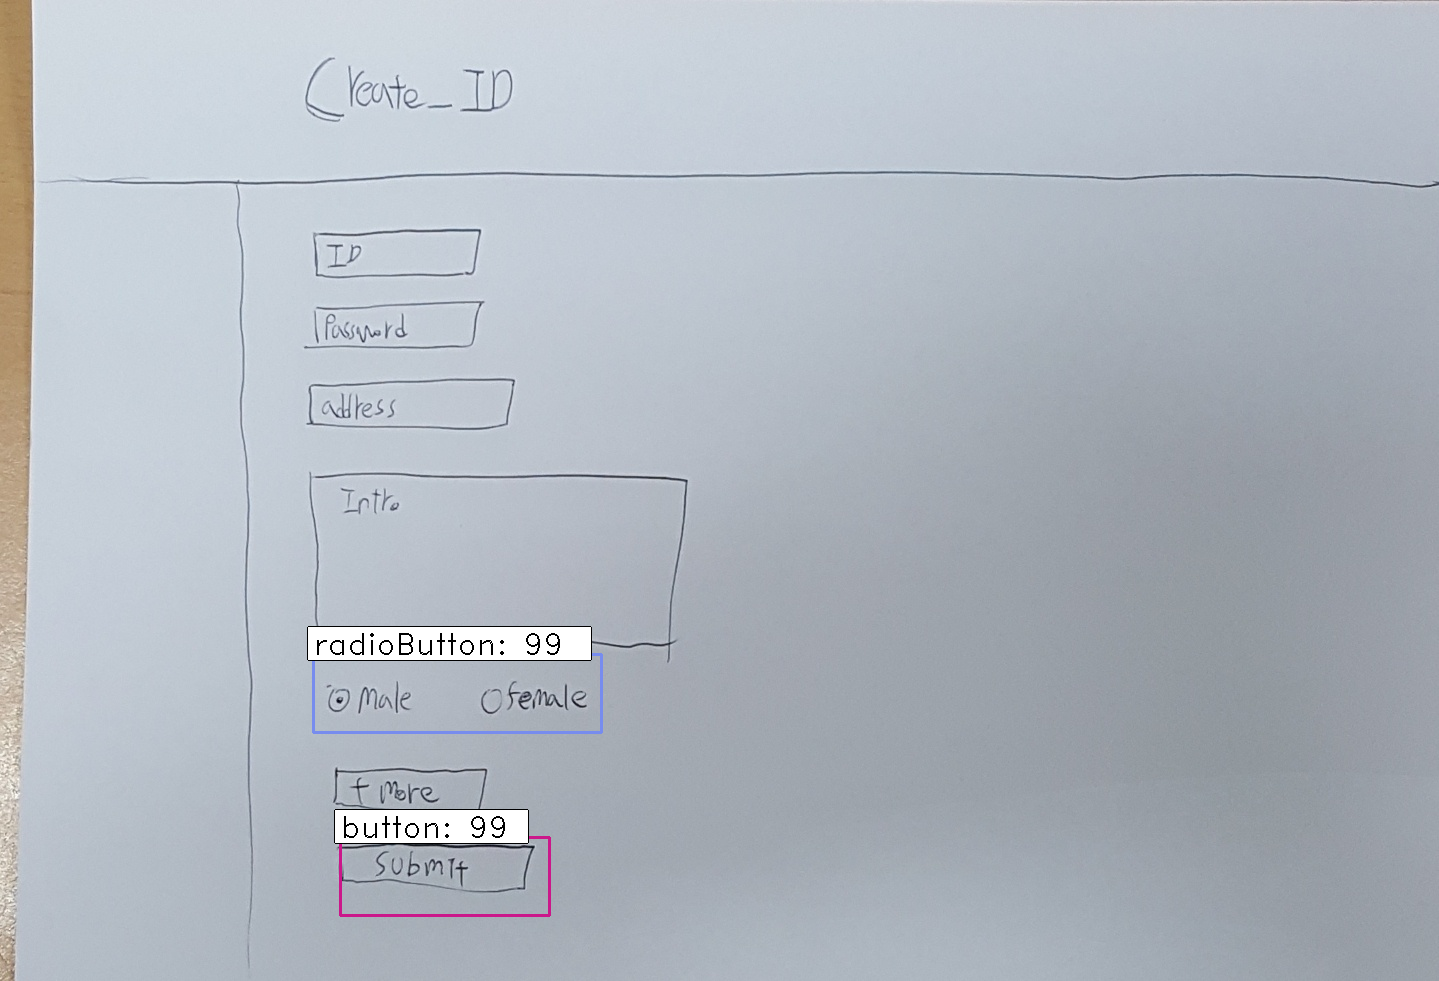 Create_ID
ID
Password
address
Intro
radioButton: 99
Male female
+ More
button: 99
Submit